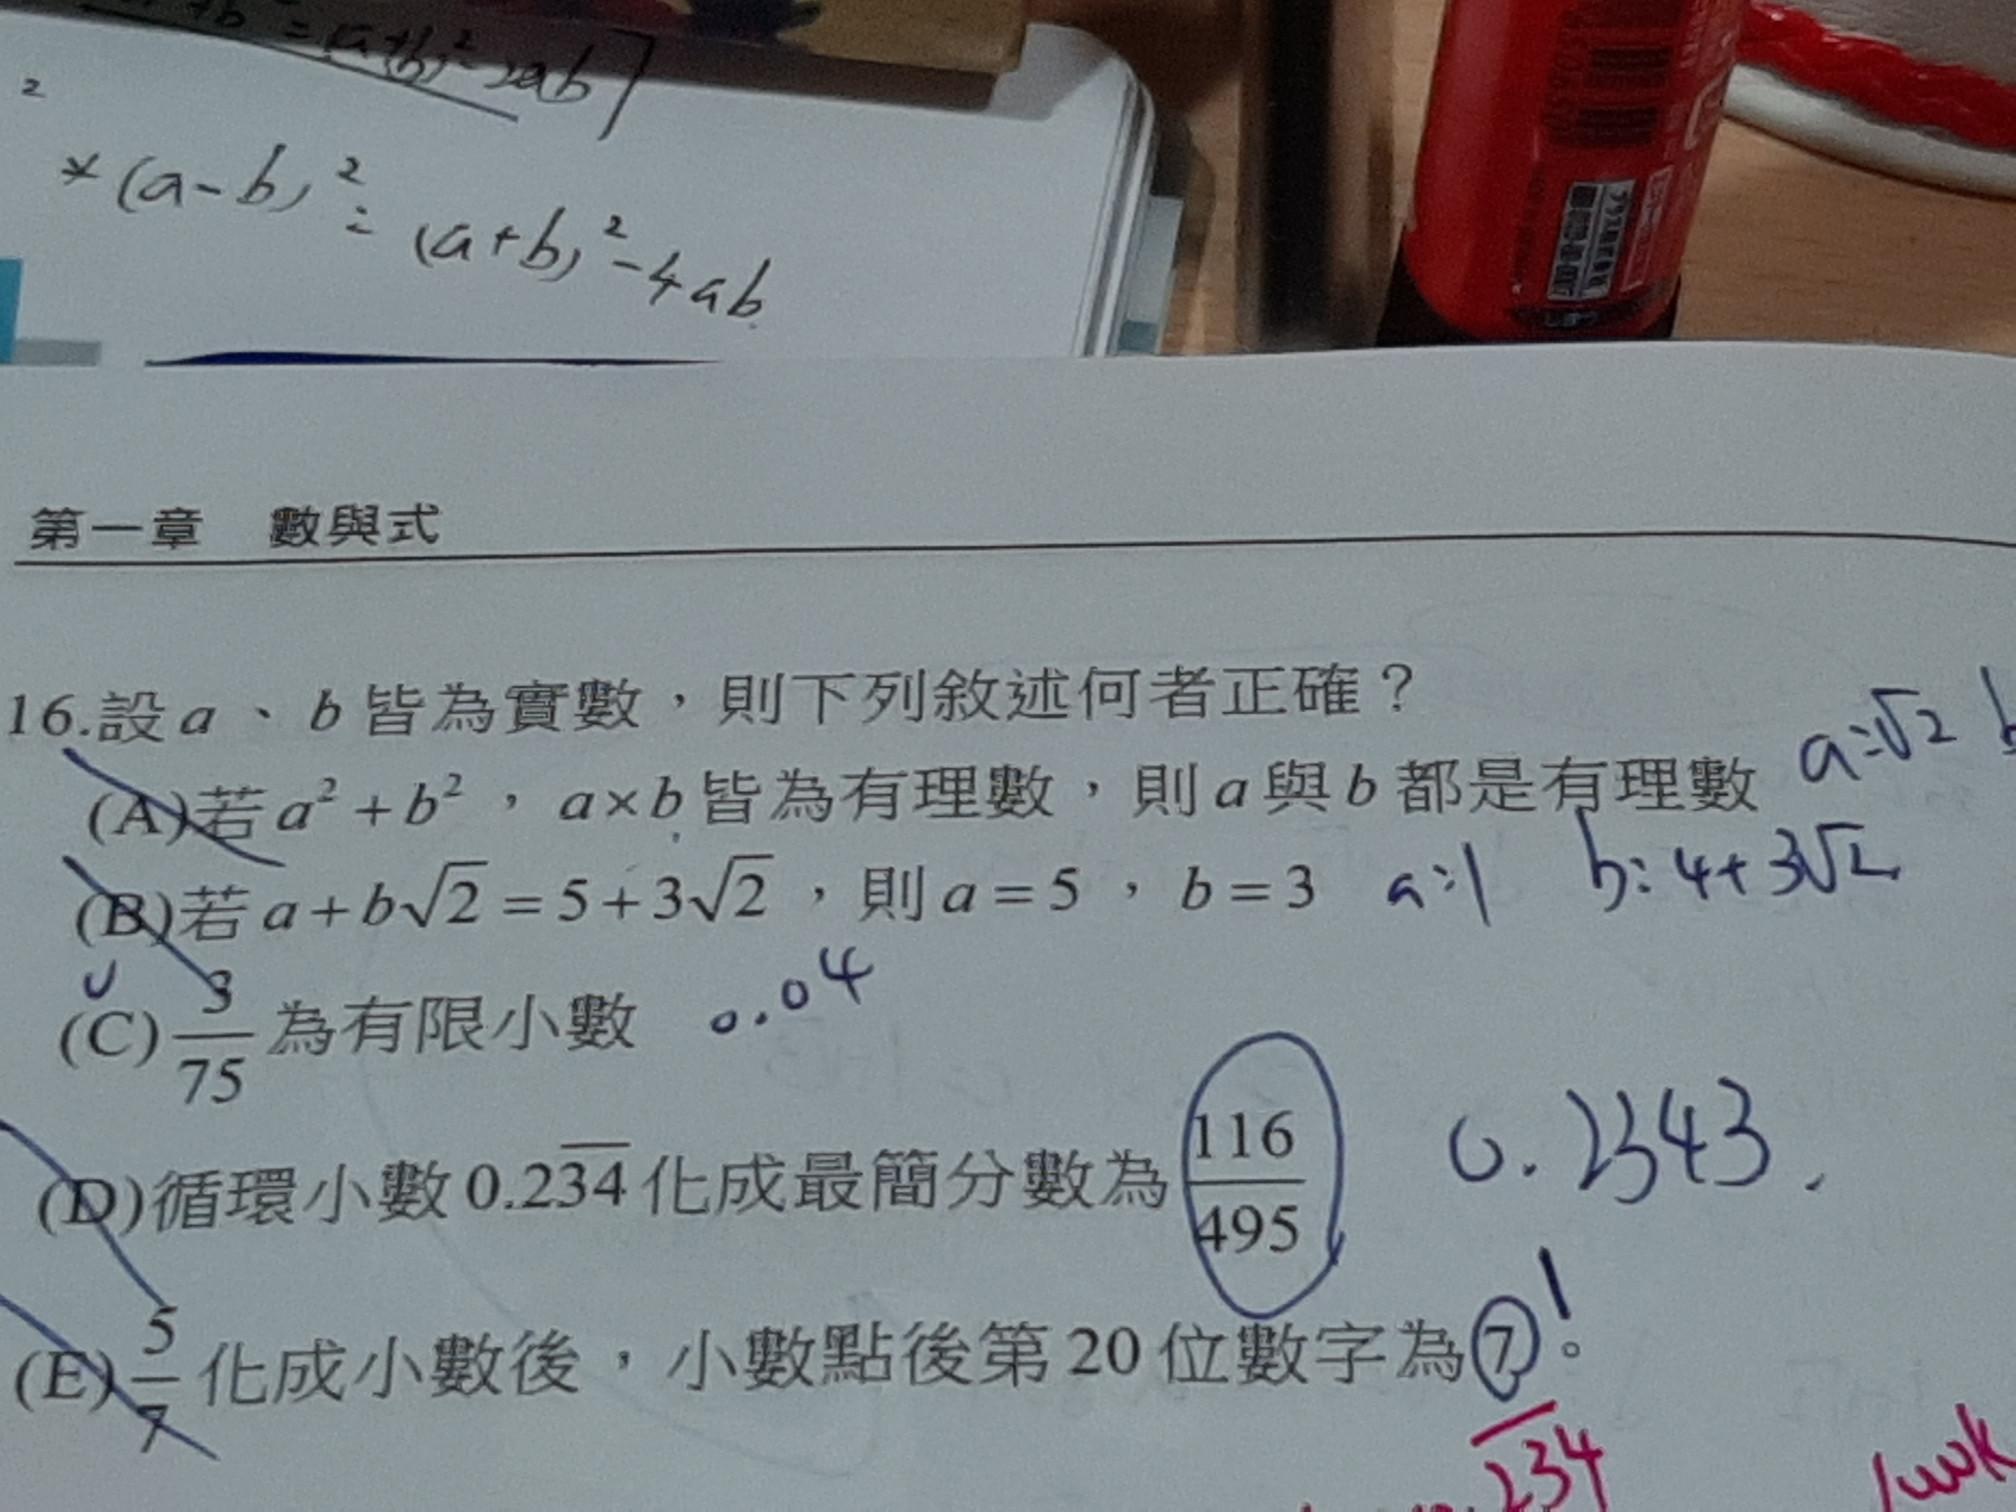 = (a+b)² - 2ab
2
* (a-b)² = (a+b)² - 4ab
第一章 數與式
16.設 a 、 b 皆為實數，則下列敘述何者正確？
a=√2 b
(A)若 a² + b² ， a×b 皆為有理數，則 a 與 b 都是有理數
(B)若 a + b√2 = 5 + 3√2 ，則 a = 5 ， b = 3 a=1 b=4+3√2
(C) 3/75 為有限小數 0.04
(D)循環小數 0.2\overline{34} 化成最簡分數為 116/495 0.2343.
(E) 5/7 化成小數後，小數點後第 20 位數字為 7 。!
234